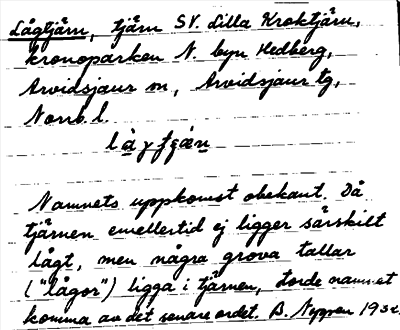 Lågtjärn, tjärn SV. Lilla Kroktjärn,
kronoparken N. byn Hedberg,
Arvidsjaur sn, Arvidsjaur tg,
Norrb. l.
Namnets uppkomst obekant. Då
tjärnen emellertid ej ligger särskilt
lågt, men några grova tallar
("lågor") ligga i tjärnen, torde namnet
komma av det senare ordet. B. 193